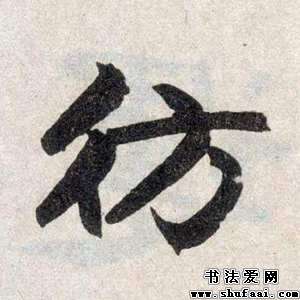 彷
书法爱网
www.shufaai.com